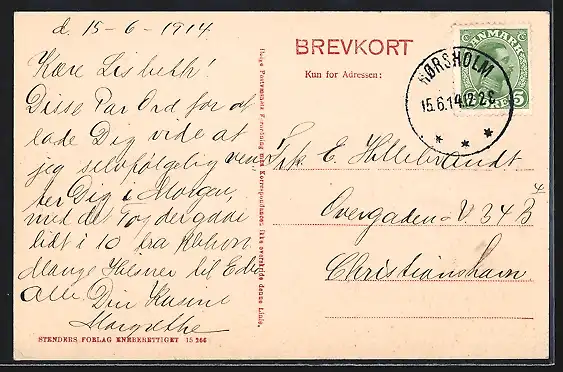 d. 15-6-1914.
Kære Lisbeth!
Disse Par Ord for at
lade Dig vide at
jeg selvfølgelig ven
ter Dig i Morgen,
med det Tog der gaar
lidt i 10 fra Kbhvn
Mange Hilsner til Eder
Alle Din Kusine
Margrethe
STENDERS FORLAG ENEBERETTIGET 15 266
Ifølge Postvæsenets Forordning maa Korrespondancen ikke overskride denne Linie.
BREVKORT
Kun for Adressen:
DANMARK
5
HØRSHOLM
15.6.14 12-2 E
Frk. E. Hillebrandt
Overgaden o/V. 34 B 4/
Christianshavn